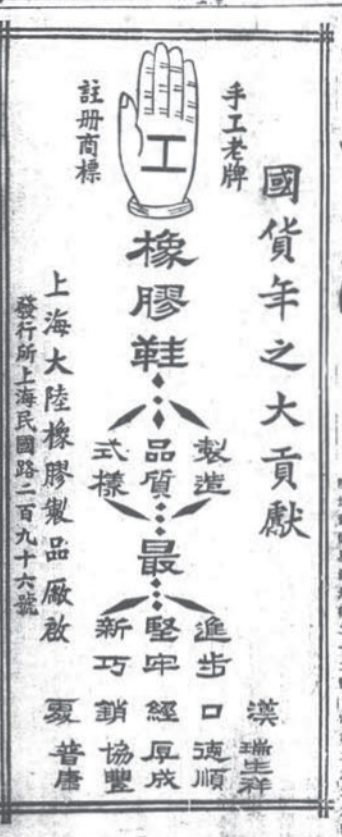 國貨年之大貢獻
手工老牌
工
註册商標
橡膠鞋
製造
品質
式樣
最
進步
堅牢
新巧
漢口經銷處
瑞生祥
德順
厚成
協豐
普康
上海大陸橡膠製品廠啟
發行所上海民國路二百九十六號